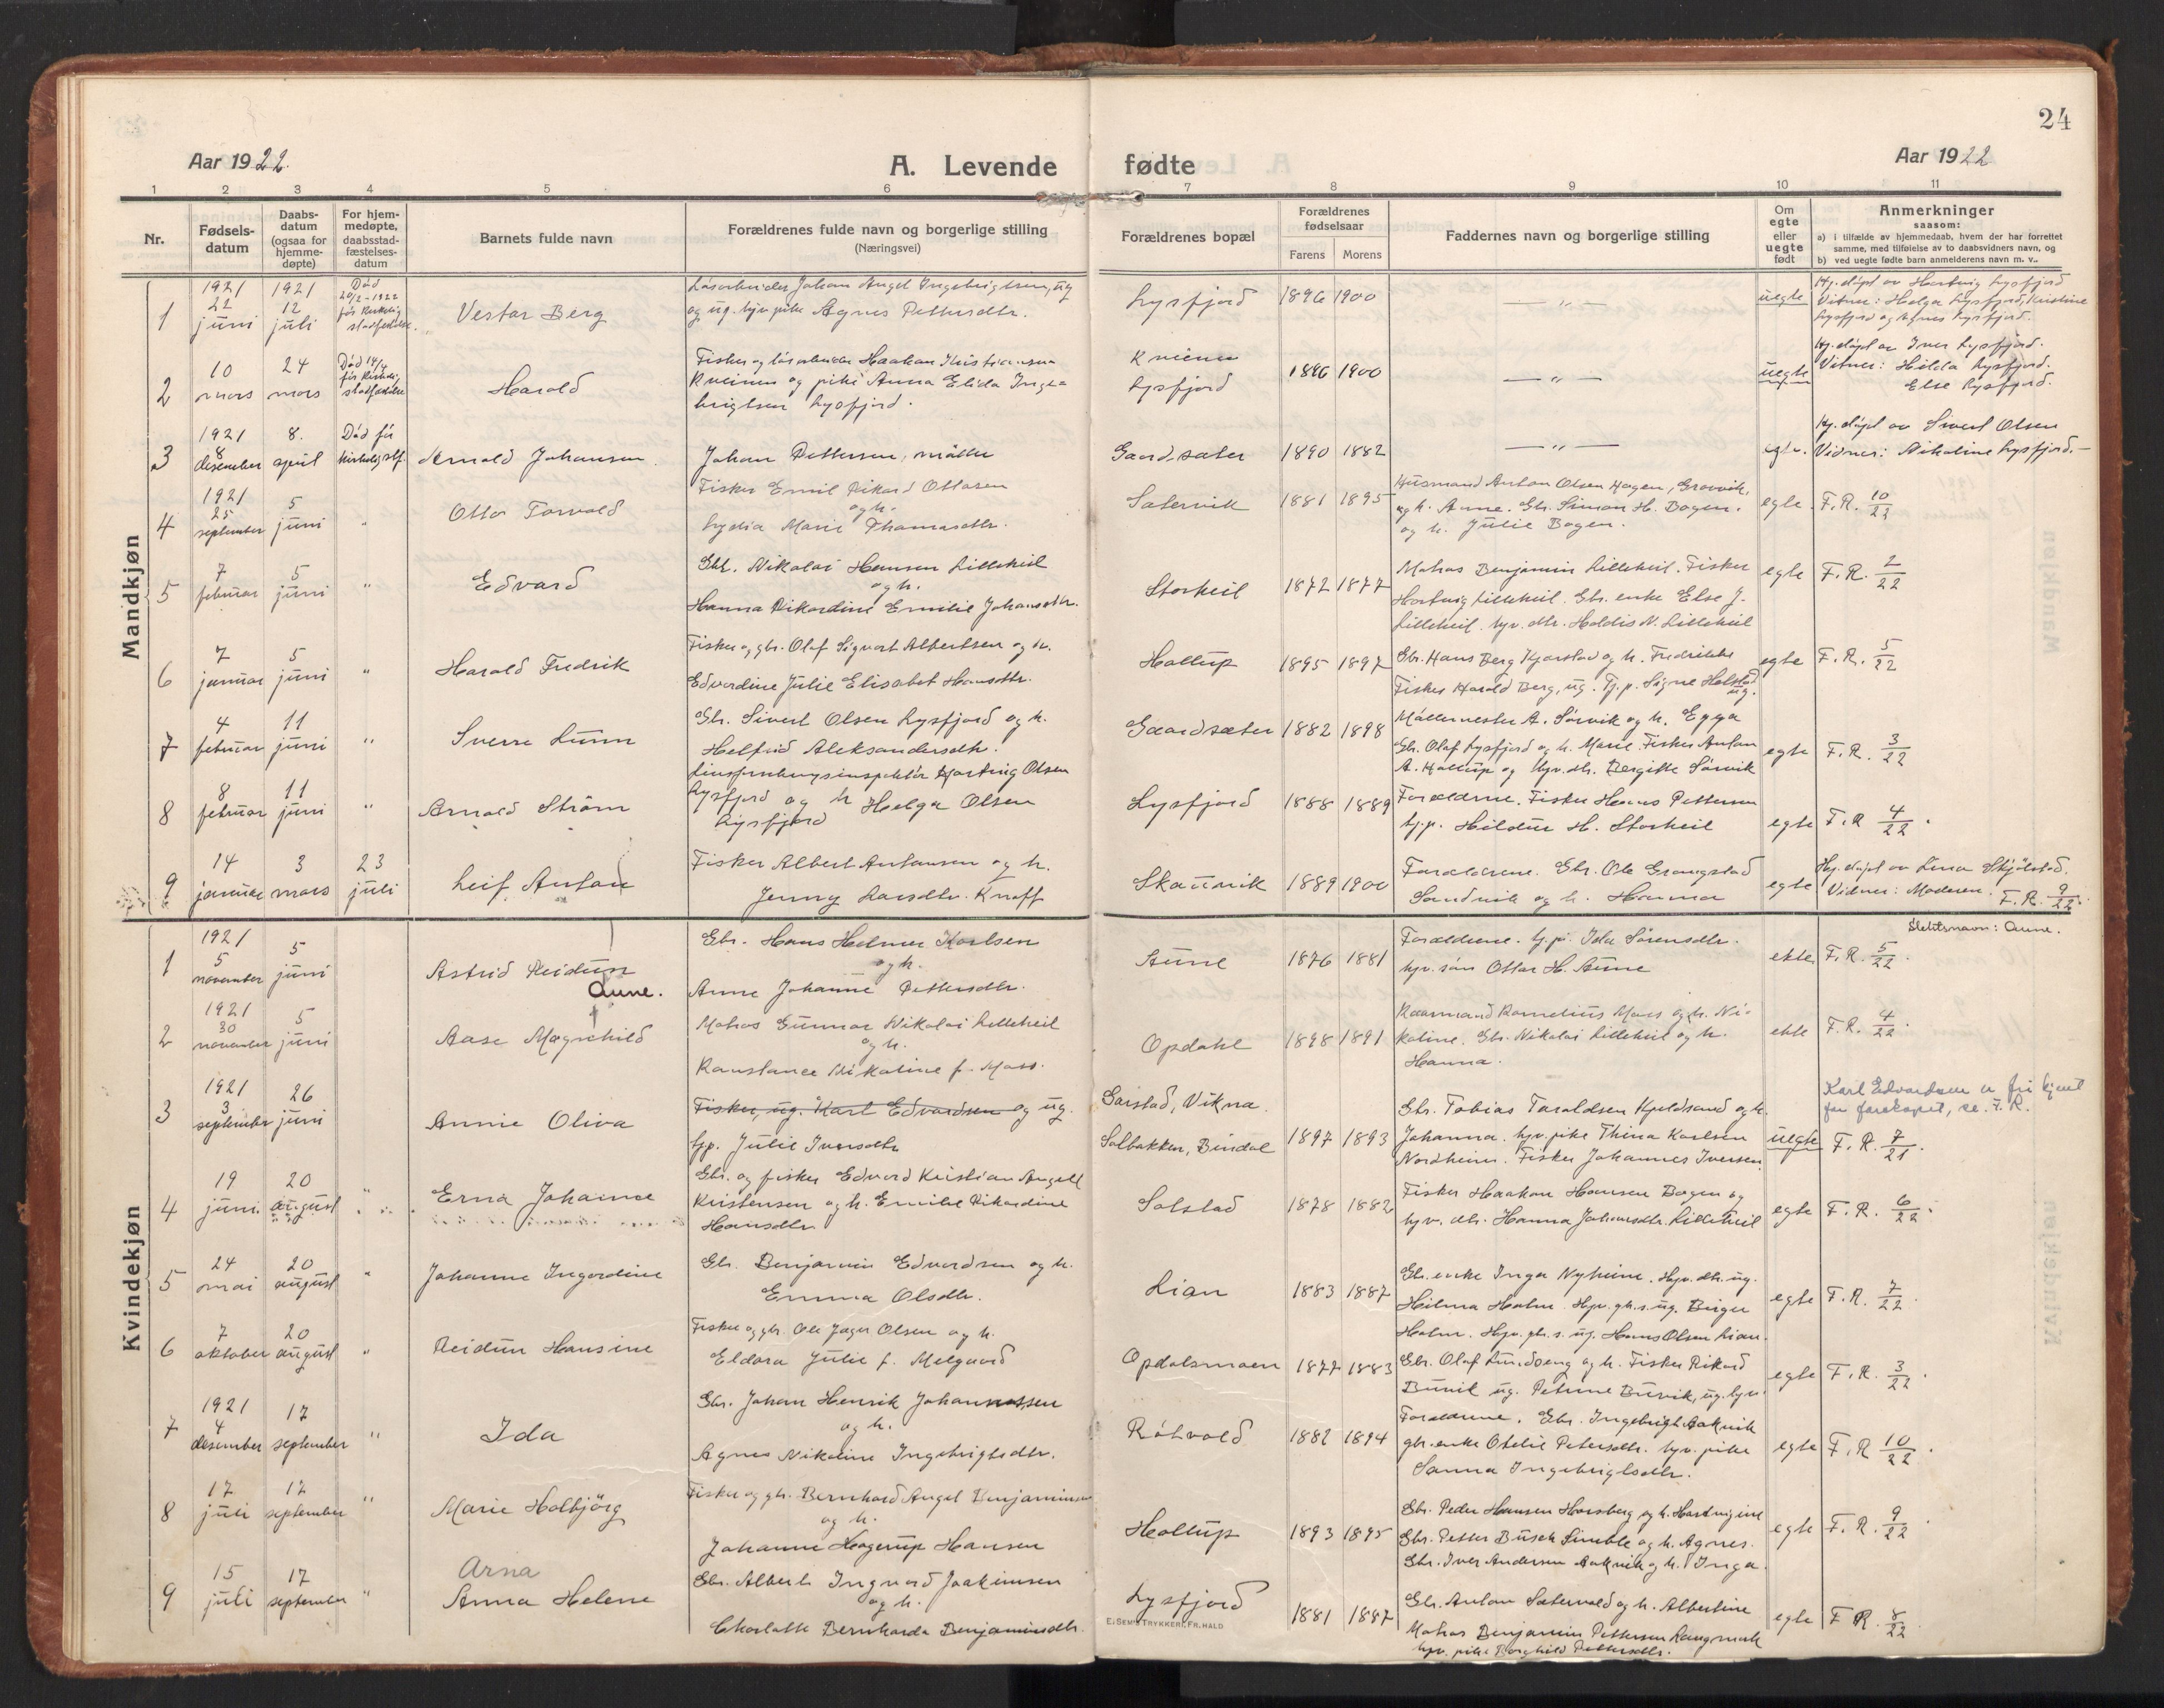 24
Aar 1922.
A. Levende fødte
Aar 1922
1 2 3 4 5 6 7 8 9 10 11
Nr.
Fødsels-
datum
Daabs-
datum
(ogsaa for
hjemme-
døpte)
For hjem-
medøpte,
daabsstad-
fæstelses-
datum
Barnets fulde navn
Forældrenes fulde navn og borgerlige stilling
(Næringsvei)
Forældrenes bopæl
Forældrenes
fødselsaar
Farens Morens
Faddernes navn og borgerlige stilling
Om
egte
eller
uegte
født
Anmerkninger
saasom:
a) i tilfælde av hjemmedaab, hvem der har forrettet
samme, med tilføielse av to daabsvidners navn, og
b) ved uegte fødte barn anmelderens navn m. v..
Mandkjøn
1
1921
22
juni
1921
12
juli
Død
20/2-1922
før kirkelig
stadfæstelse.
Vestar Berg
Løsarbeider Johan Angel Ingebrigtsen, ug
og ug. hjv. pike Agnes Pettersdtr.
Lysfjord
1896 1900
— " —
uegte
Hj. døpt av Hartvig Lysfjord
Vitner: Helga Lysfjord, Kristine
Lysfjord og Agnes Lysfjord.
2
10
mars
24
mars
Harald
Fisker og løsarbeider Haakon Kristiansen
og pike Anna Elida Inge-
brigtsen Lysfjord.
Lysfjord
1896 1900
— " —
uegte
Hj. døpt av Iver Lysfjord.
Vitner: Hilda Lysfjord.
Else Lysfjord.
3
1921
8
desember
8.
april
Død før
kirkelig stf.
Arnold Johansen
Johan Pettersen, møller
Gaardsæter
1890 1882
— " —
egte.
Hj. døpt av Sivert Olsen
Vidner: Nikoline Lysfjord. —
4
1921
25
september
5
juni
"
Otto Torvald
Fisker Emil Rikard Ottosen
og h.
Lydia Marie Thomasdtr.
Satervik
1881 1895
Husmand Anton Olsen Hagen, Gravvik,
og h. Anne. Gbr. Simon H. Bogen.
og h. Julie Bogen.
egte
F. R. 10/22
5
7
februar
5
juni
"
Edvard
Gbr. Nikolai Hansen Lilleheil
og h.
Hanna Rikardine Emilie Johansdtr.
Storheil
1872 1877
Matros Benjamin Lilleheil. Fisker
Hartvig Lilleheil. Gbr. enke Else J.
Lilleheil. hjv. dtr. Haldis N. Lilleheil
egte
F. R. 2/22
6
7
januar
5
juni
"
Harald Fredrik
Fisker og gbr. Olaf Sigvart Albertsen og h.
Edvardine Julie Elisabet Hansdtr.
Holtup
1895 1897
Gbr. Hans Berg Kjærstad og h. Fredrikke
Fisker Harald Berg, ug. Tj. p. Signe Holstad
ug.
egte
F. R. 5/22
7
4
februar
11
juni
"
Sverre Lunn
Gbr. Sivert Olsen Lysfjord og h.
Helfrid Aleksandersdtr.
Gaardsæter
1882 1898
Møllermester A. Sørvik og h. Egga
Gbr. Olaf Lysfjord og h. Marie. Fisker Anton
A. Holtup og hjv. dtr. Bergitte Sørvik
egte
F. R. 3/22
8
8
februar
11
juni
"
Arnold Strøm
Hartvig Olsen
Lysfjord og h Helga Olsen
Lysfjord
Lysfjord
1888 1889
Forældrene. Fisker Hans Pettersen
tj. p. Hildur H. Storheil
egte
F. R 4/22.
9
14
januar
3
mars
23
juli
Leif Anton
Fisker Albert Antonsen og h.
Jenny Larsdtr. Knoff
Skaunvik
1889 1900
Forældrene. Gbr. Ole Grongstad
Sandvik og h. Hanna
egte
Hj. døpt av Lina Skjølstad.
Vidner: Moderen. F. R. 9/22.
Kvindekjøn
1
1921
5
november
5
juni
Astrid Reidun
Aune.
Gbr. Hans Helmer Karlsen
og h.
Anne Johanne Pettersdtr.
Aune
1876 1881
Forældrene. tj. pi. Ida Sørensdtr.
hjv. søn Ottar H. Aune
ekte
Slektsnavn: Aune.
F. R. 5/22.
2
1921
30
november
5
juni
Aase Magnhild
Matros Gunnar Nikolai Lilleheil
og h.
Konstance Nikoline f. Moss.
Opdahl
1898 1891
Kaarmand Kornelius Moss og h. Ni-
koline. Gbr. Nikolai Lilleheil og h.
Hanna.
ekte
F. R. 4/22.
3
1921
3
september
26
juni
Annie Oliva
Fisker, ug. Karl Edvardsen og ug.
tjp. Julie Iversdtr
Garstad, Vikna.
Solbakken, Bindal
1897 1893
Gbr. Tobias Taraldsen Kjeldsand og h.
Johanna. hjv. pike Thina Karlsen
Nordheim. Fisker Johannes Iversen
uegte
Karl Edvardsen er fri kjent
for farskapet, se. F. R.
F. R. 7/21.
4
19
juni
20
august
Erna Johanne
Gbr. og fisker Edvard Kristian Angell
Kristensen og h. Emilie Rikardine
Hansdtr
Solstad
1878 1882
Fisker Haakon Hansen Bogen og
hjv. dtr. Hanna Johansdtr. Lilleheil
egte
F. R. 6/22.
5
24
mai
20
august
"
Johanne Ingardine
Gbr. Benjamin Edvardsen og h.
Emma Olsdtr.
Lian
1883 1887
Gbr. enke Inga Nyheim. Hjv. dtr. ug.
Hilma Holm. Hjv. gb. s. ug. Birger
Holm. Hjv. gb. s. ug. Hans Olsen Lian.
egte
F. R. 7/22.
6
7
oktober
20
august
"
Reidun Hansine
Fisker og gbr. Ole Jager Olsen og h.
Eldora Julie f. Melgaard
Opdalsmoen
1877 1883
Gbr. Olaf Lundseng og h. Fisker Rikard
Burvik ug. Petrine Burvik, ug. hjv.
egte
F. R. 3/22.
7
1921
4
desember
17
september
"
Ida
Gbr. Johan Henrik Johannessen
og h.
Agnes Nikoline Ingebrigtsdtr.
Røtvold
1882 1894
Forældrene. Gbr. Ingebrigt Aakvik
gbr. enke Otelie Petersdtr. hjv. pike
Sanna Ingebrigtsdtr.
egte
F. R 10/22.
8
17
juli
17
september
"
Marie Holbjörg
Fisker og gbr. Bernhard Angel Benjaminsen
og h.
Johanne Hagerup Hansen
Holtup
1893 1895
Gbr. Peder Hansen Horsberg og h. Hartvigine
Gbr. Petter Busch Simble og h. Agnes.
Gbr. Iver Andersen Aakvik og h. Inga.
egte
F. R. 9/22.
9
15
juli
17
september
"
Arna
Anna Helene
Gbr. Albert Ingvard Joakimsen
og h.
Charlotte Bernharda Benjaminsdtr.
Lysfjord
1881 1887
Gbr. Anton Satervold og h. Albertine
Matros Benjamin Pettersen Langmark
hjv. pike Borghild Pettersdtr.
egte
F R. 8/22.
E. SEMS TRYKKERI, FR. HALD